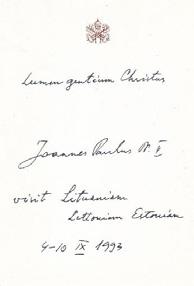 Lumen gentium Christus
Joannes Paulus PP. II
visit Lituaniam
Lettoniam Estoniam
4-10 IX 1993